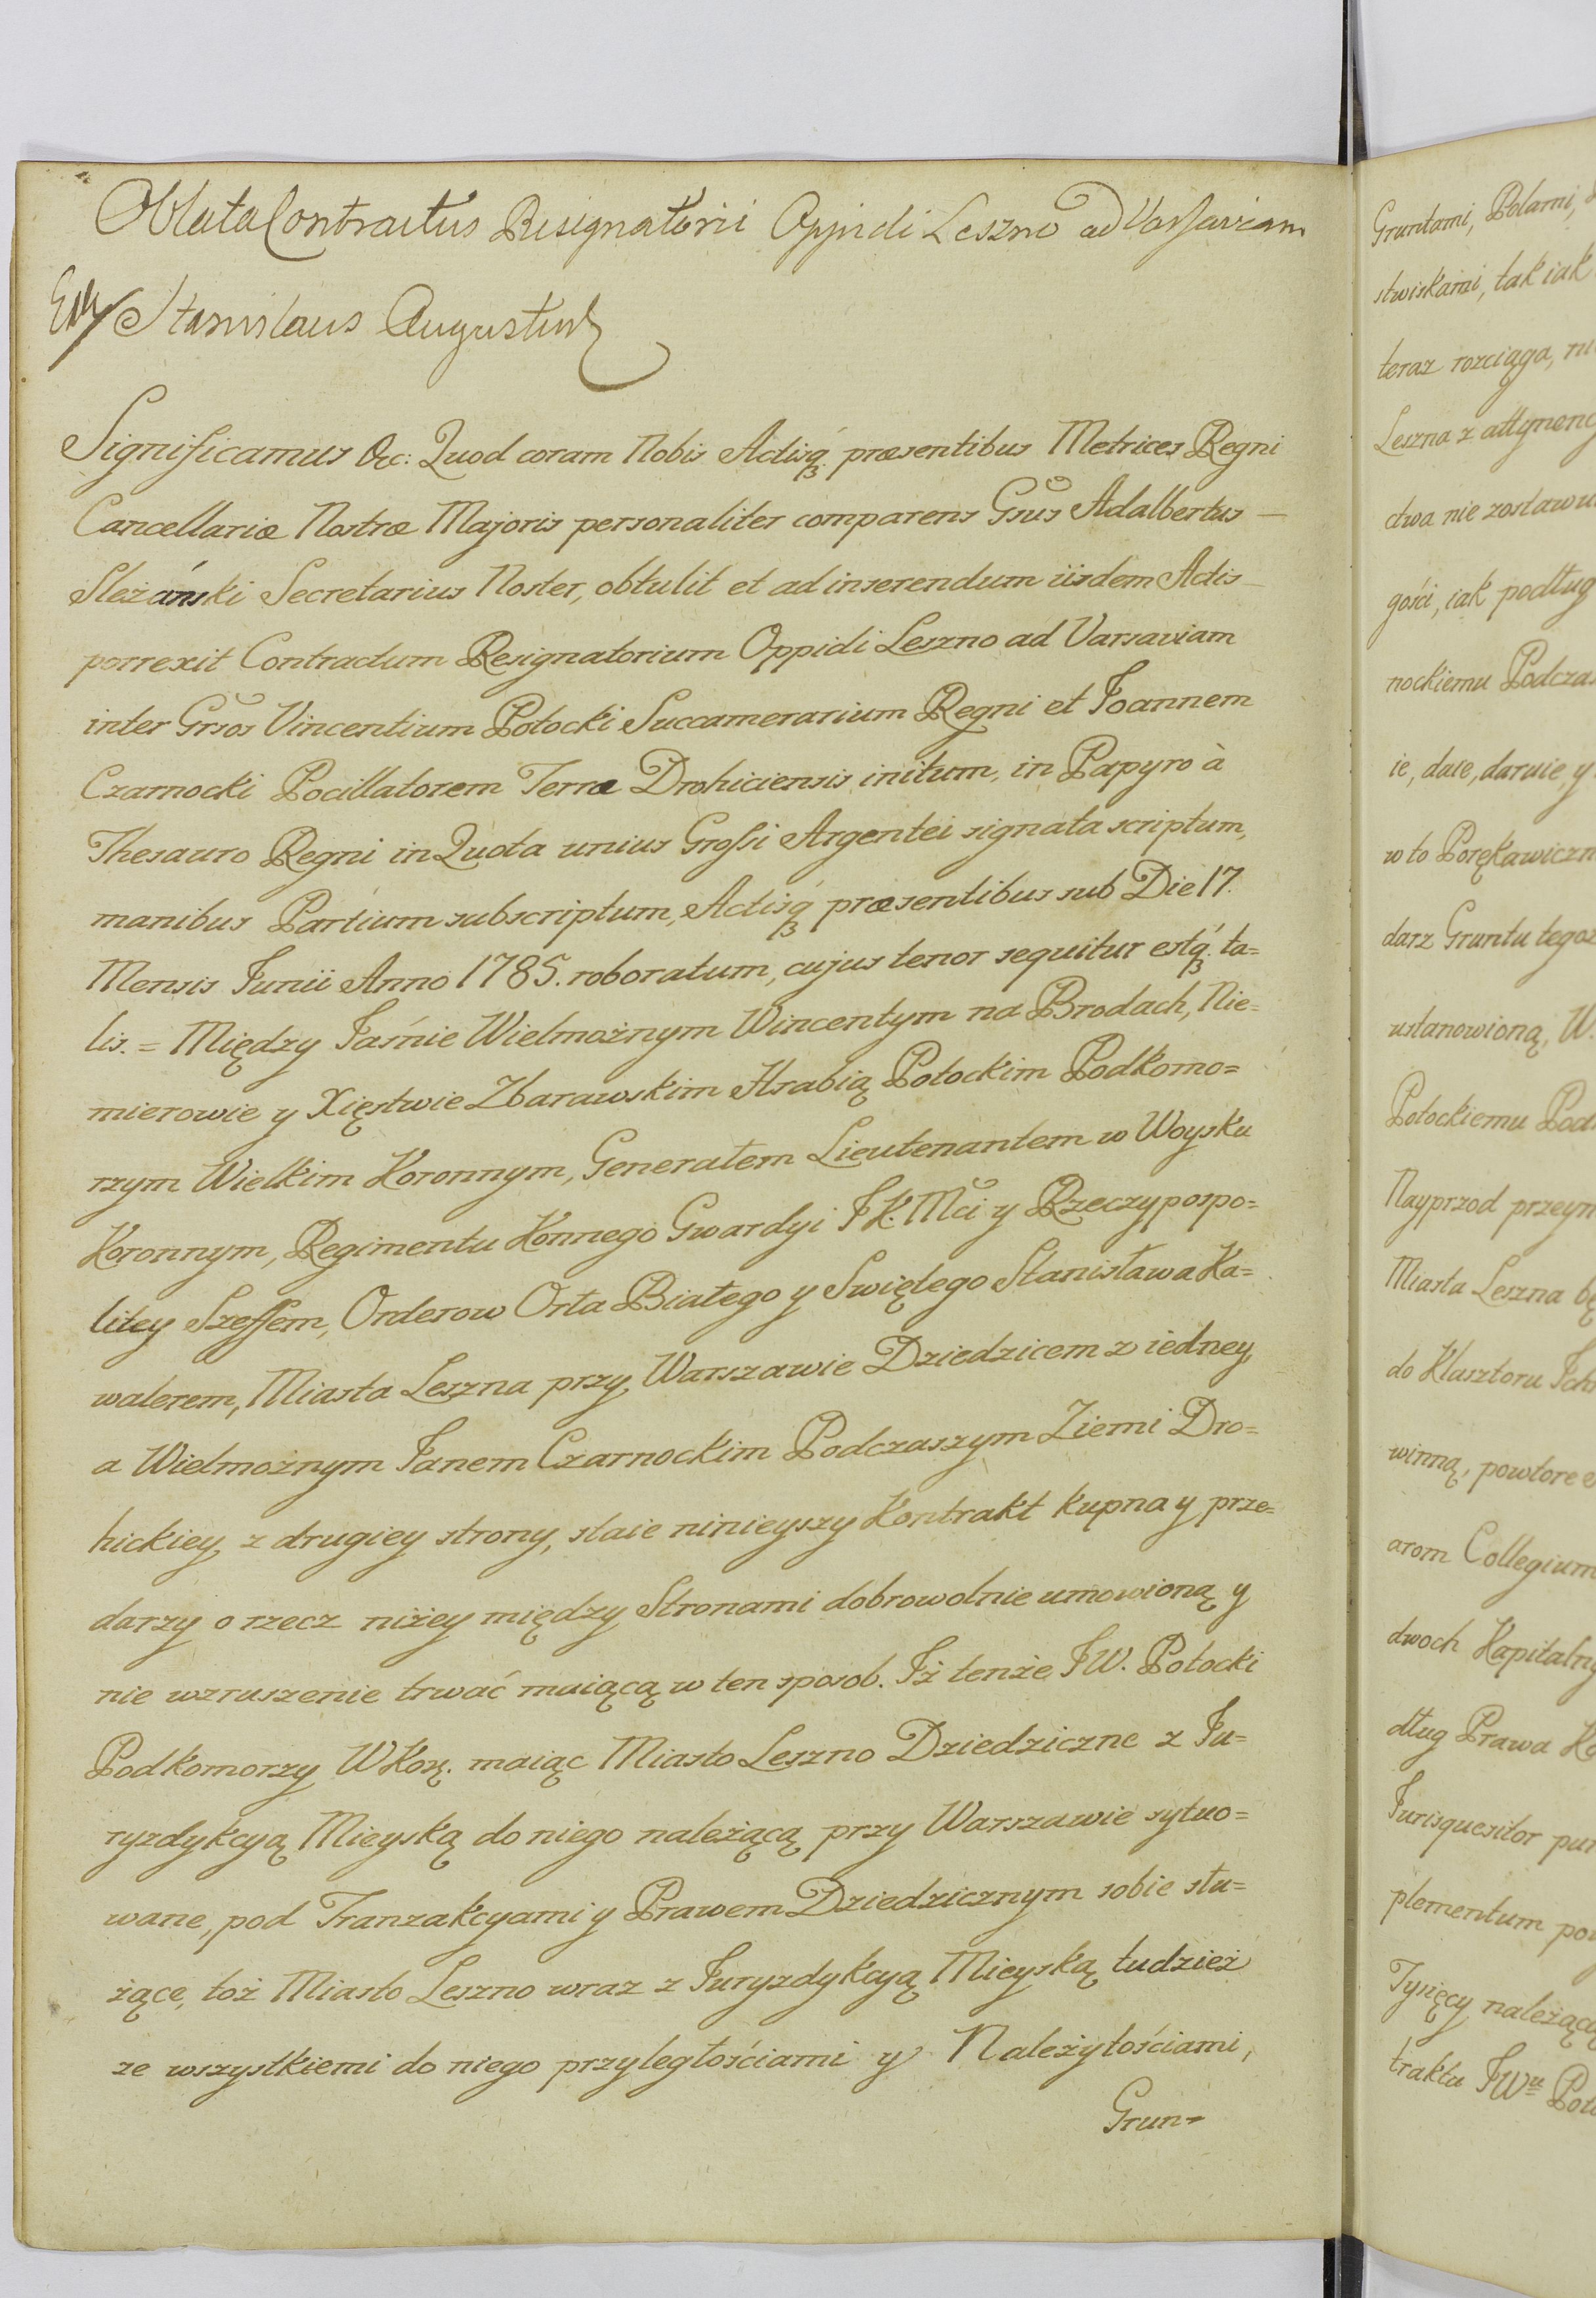 Oblata Contractus Resignatorii Oppidi Leszno ad Varsaviam
Stanislaus Augustus
Significamus &c: Quod coram Nobis Actisq₃ præsentibus Metrices Regni
Cancellariæ Nostræ Majoris personaliter comparens Gsus Adalbertus —
Sleżański Secretarius Noster, obtulit et ad inserendum iisdem Actis —
porrexit Contractum Resignatorium Oppidi Leszno ad Varsaviam
inter Grsos Vincentium Potocki Succamerarium Regni et Joannem
Czarnocki Pocillatorem Terræ Drohiciensis initum, in Papyro à
Thesauro Regni in Quota unius Grossi Argentei signata scriptum,
manibus Partium subscriptum, Actisq₃ præsentibus sub Die 17.
Mensis Junii Anno 1785. roboratum, cujus tenor sequitur estq₃ ta=
lis. = Między Jaśnie Wielmożnym Wincentym na Brodach, Nie=
mierowie y Xięstwie Zbarawskim Hrabią Potockim Podkomo=
rzym Wielkim Koronnym, Generałem Lieutenantem w Woysku
Koronnym, Regimentu Konnego Gwardyi J K. Mci y Rzeczypospo=
litey Szeffem, Orderow Orła Białego y Swiętego Stanisława Ka=
walerem, Miasta Leszna przy Warszawie Dziedzicem z iedney,
a Wielmożnym Janem Czarnockim Podczaszym Ziemi Dro=
hickiey z drugiey strony, staie ninieyszy Kontrakt kupna y prze=
darzy o rzecz niżey między Stronami dobrowolnie umowioną y
nie wzruszenie trwać maiącą w ten sposob. Iż tenże JW. Potocki
Podkomorzy WKor. maiąc Miasto Leszno Dziedziczne z Ju=
ryzdykcyą Mieyską do niego należącą przy Warszawie sytuo=
wane, pod Tranzakcyami y Prawem Dziedzicznym sobie słu=
żące, toż Miasto Leszno wraz z Juryzdykcyą Mieyską tudzież
ze wszystkiemi do niego przyległościami y Należytościami,
Grun=
Gruntami, Polami,
stwiskami, tak iak
teraz rozciąga,
Leszna z attynenc
ctwa nie zostawu
gości, iak podług
nockiemu Podcza
ie, daie, daruie, y
w to Porękawiczn
darz Gruntu tegoż
ustanowioną, W.
Potockiemu Pod
Nayprzod przeym
Miasta Leszna bę
do Klasztoru
winną, powtore
arom Collegium
dwoch Kapitalny
dług Prawa
Jurisquesitor pur
plementum po
Tynęcy należącą
traktu JWu Poto